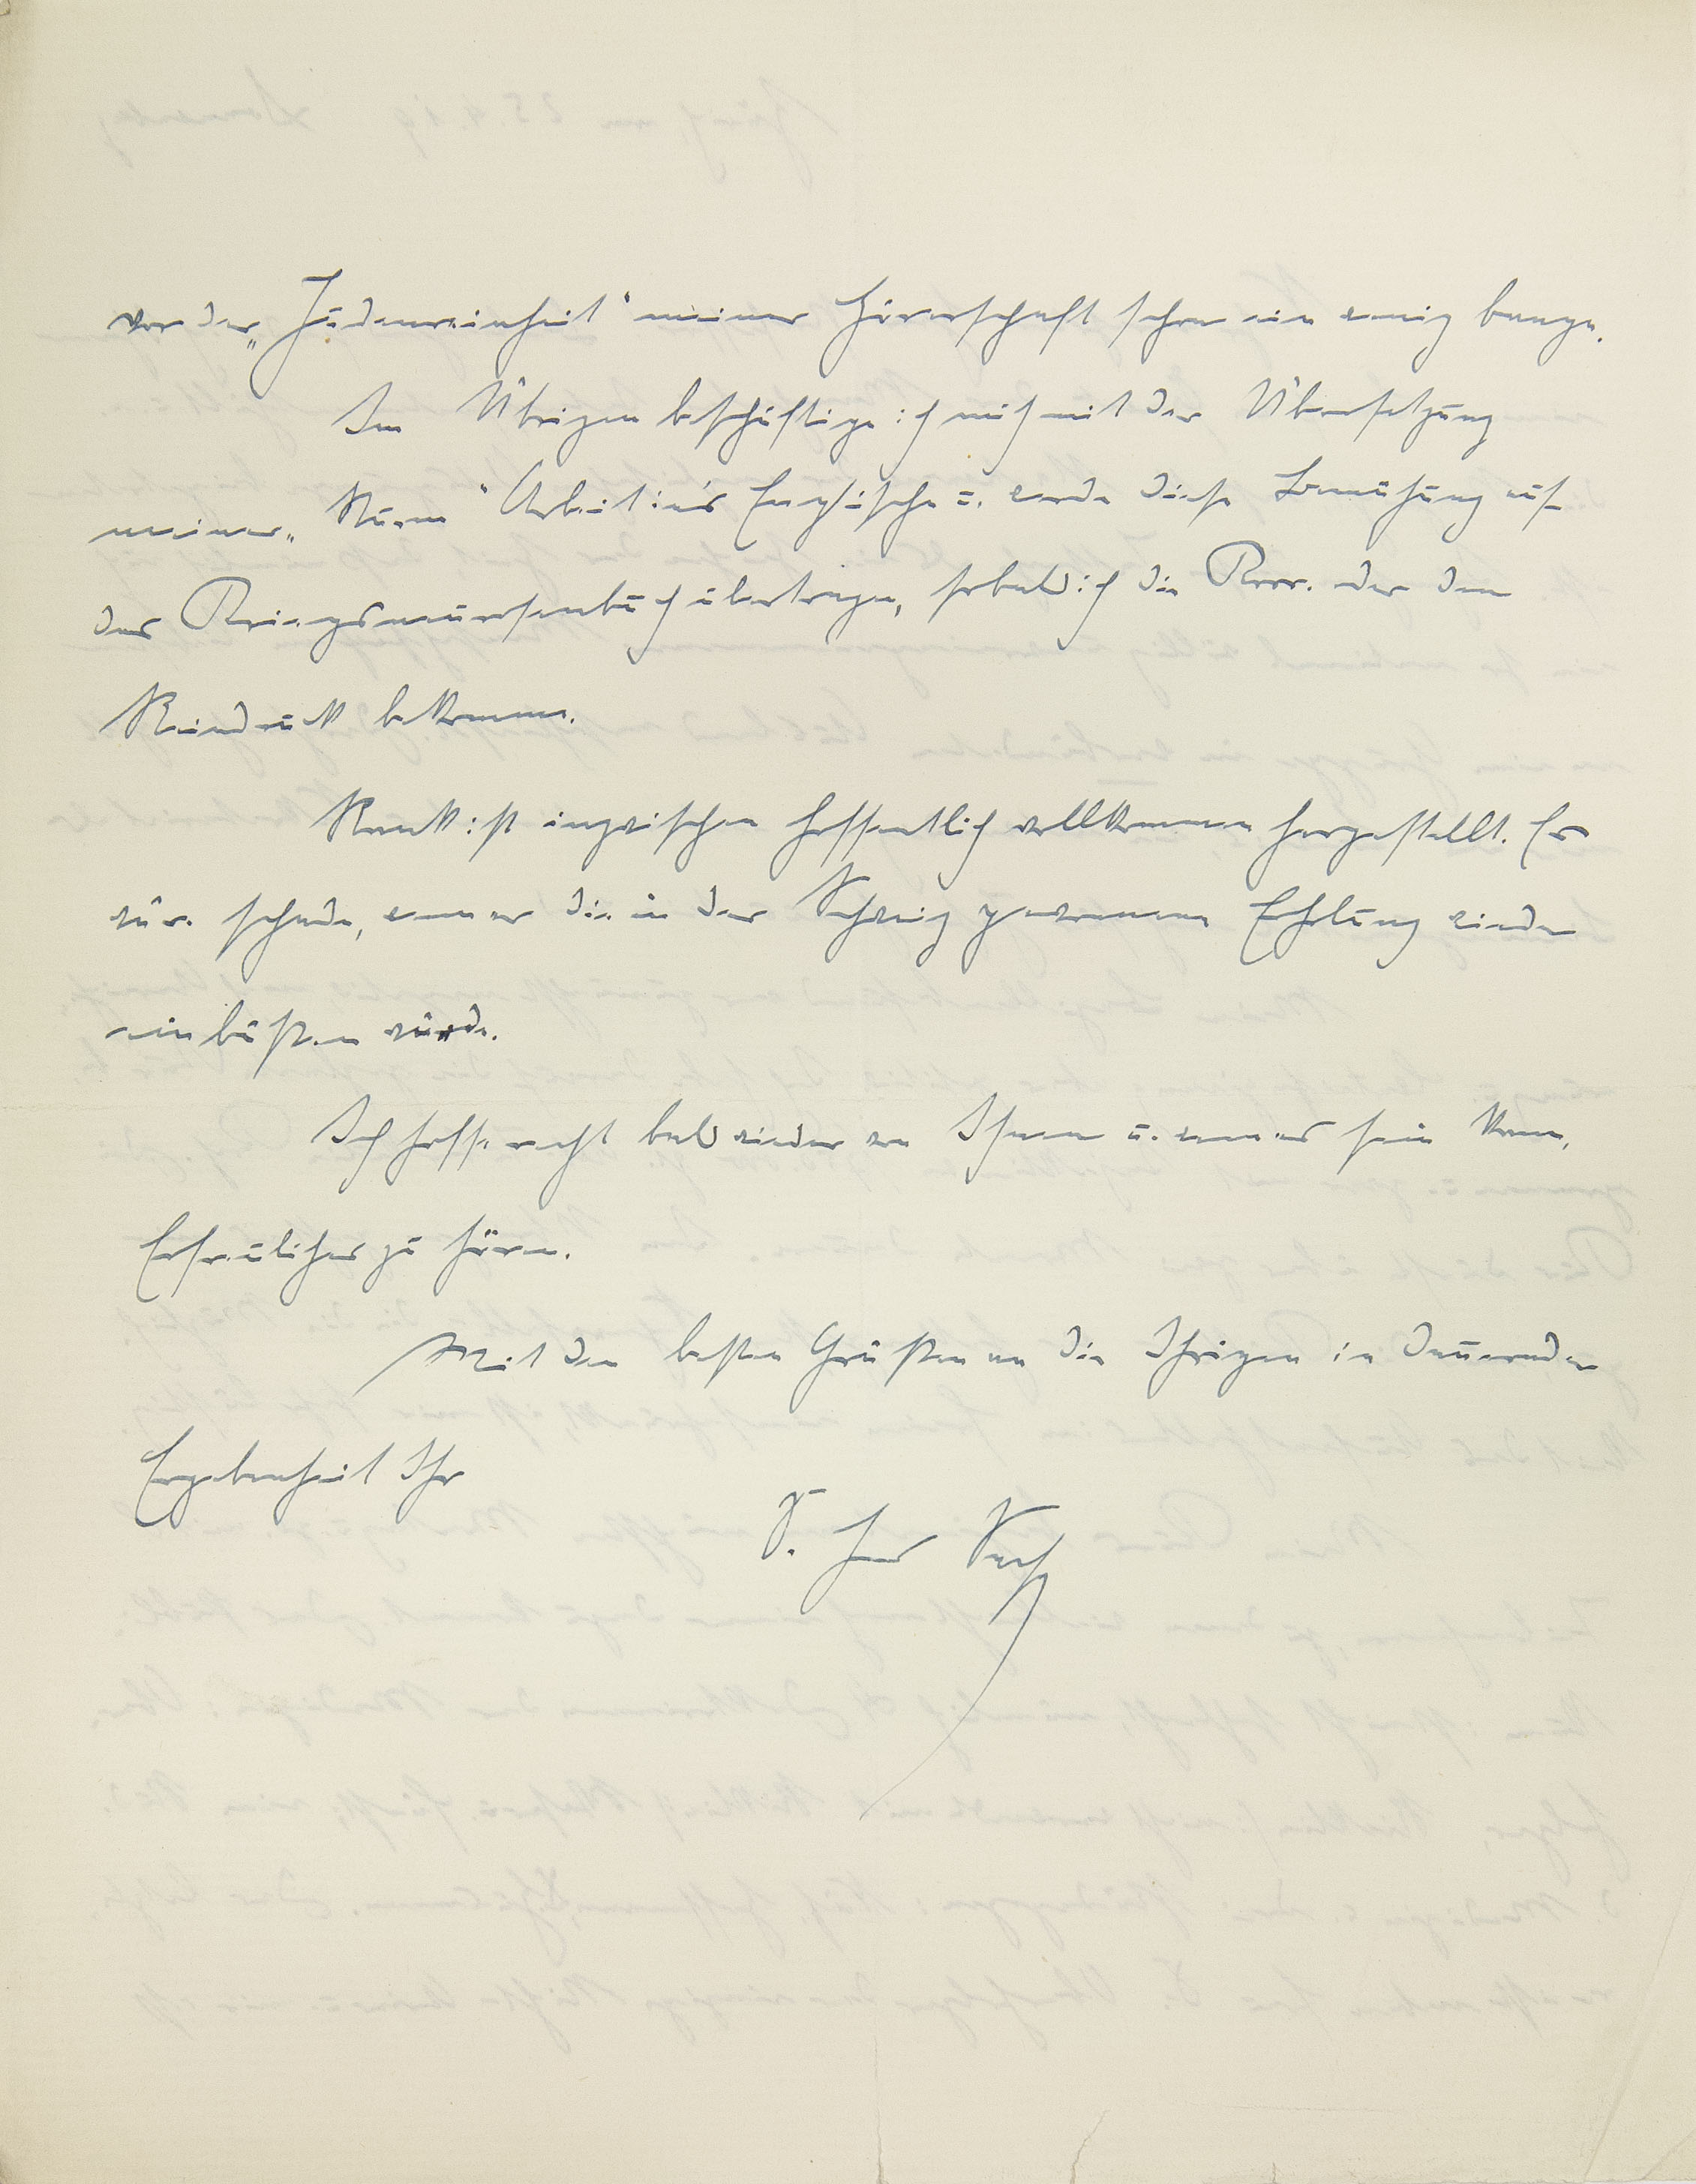 vor der „Judenreinheit“ meiner Hörerschaft schon ein wenig bange.
Im Übrigen beschäftige ich mich mit der Übersetzung
meiner Arbeit ins Englische u. werde diese Bemühung auf
das Kriegsneurosenbuch übertragen, sobald ich die Korr. oder den
Reindruck bekomme.
Rank ist inzwischen hoffentlich vollkommen hergestellt. Es
wär. schade, wenn er die in der Schweiz gewonnene Erholung wieder
einbüßen würde.
Ich hoffe recht bald wieder von Ihnen u. wenn es sein kann,
Erfreuliches zu hören.
Mit den besten Grüßen an die Ihrigen in dauernder
Ergebenheit Ihr
D. Hanns Sachs